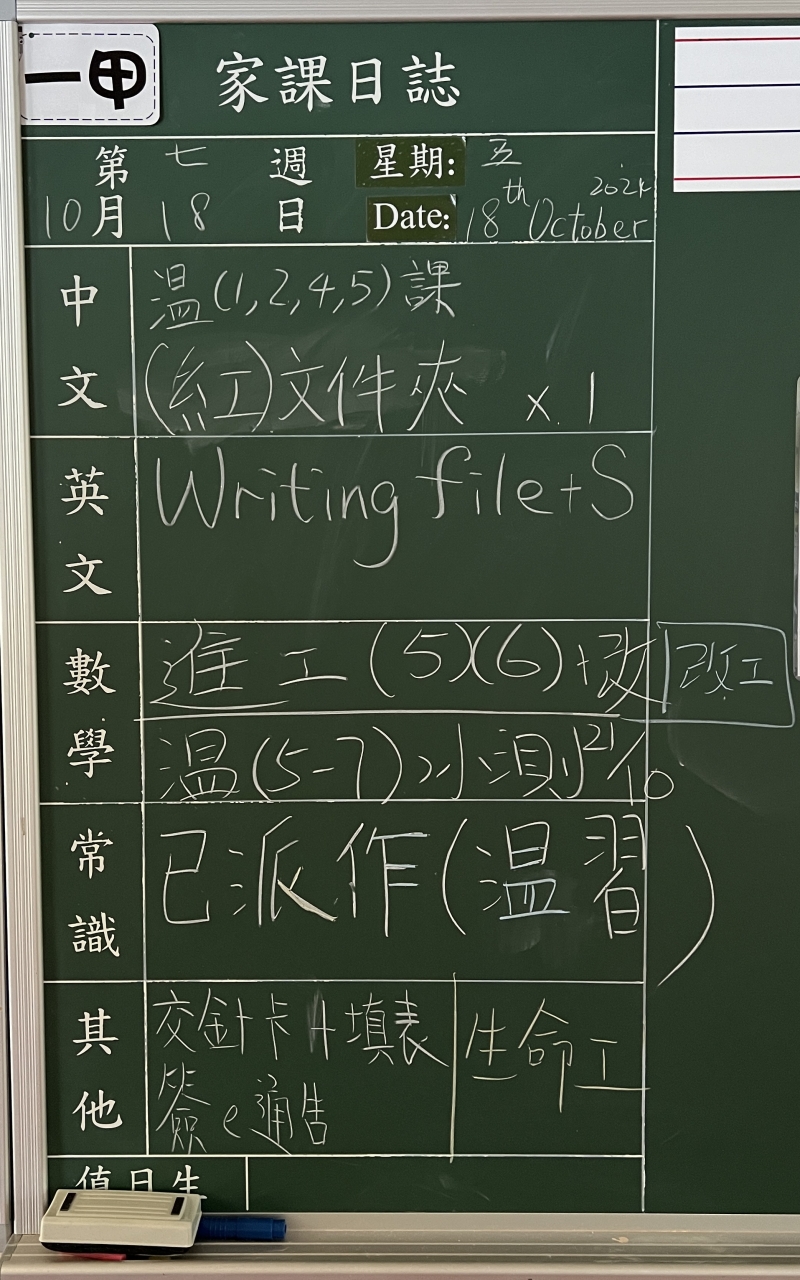 一甲
家課日誌
第七週 星期: 五
10月18日 Date: 18th October 2024
中文
温(1,2,4,5)課
(紅)文件夾 x 1
英文
Writing file+S
數學
進工(5)(6)+改 改工
温(5-7)>小測21/10
常識
已派作(温習)
其他
交針卡+填表
簽e通告
生命工
值日生